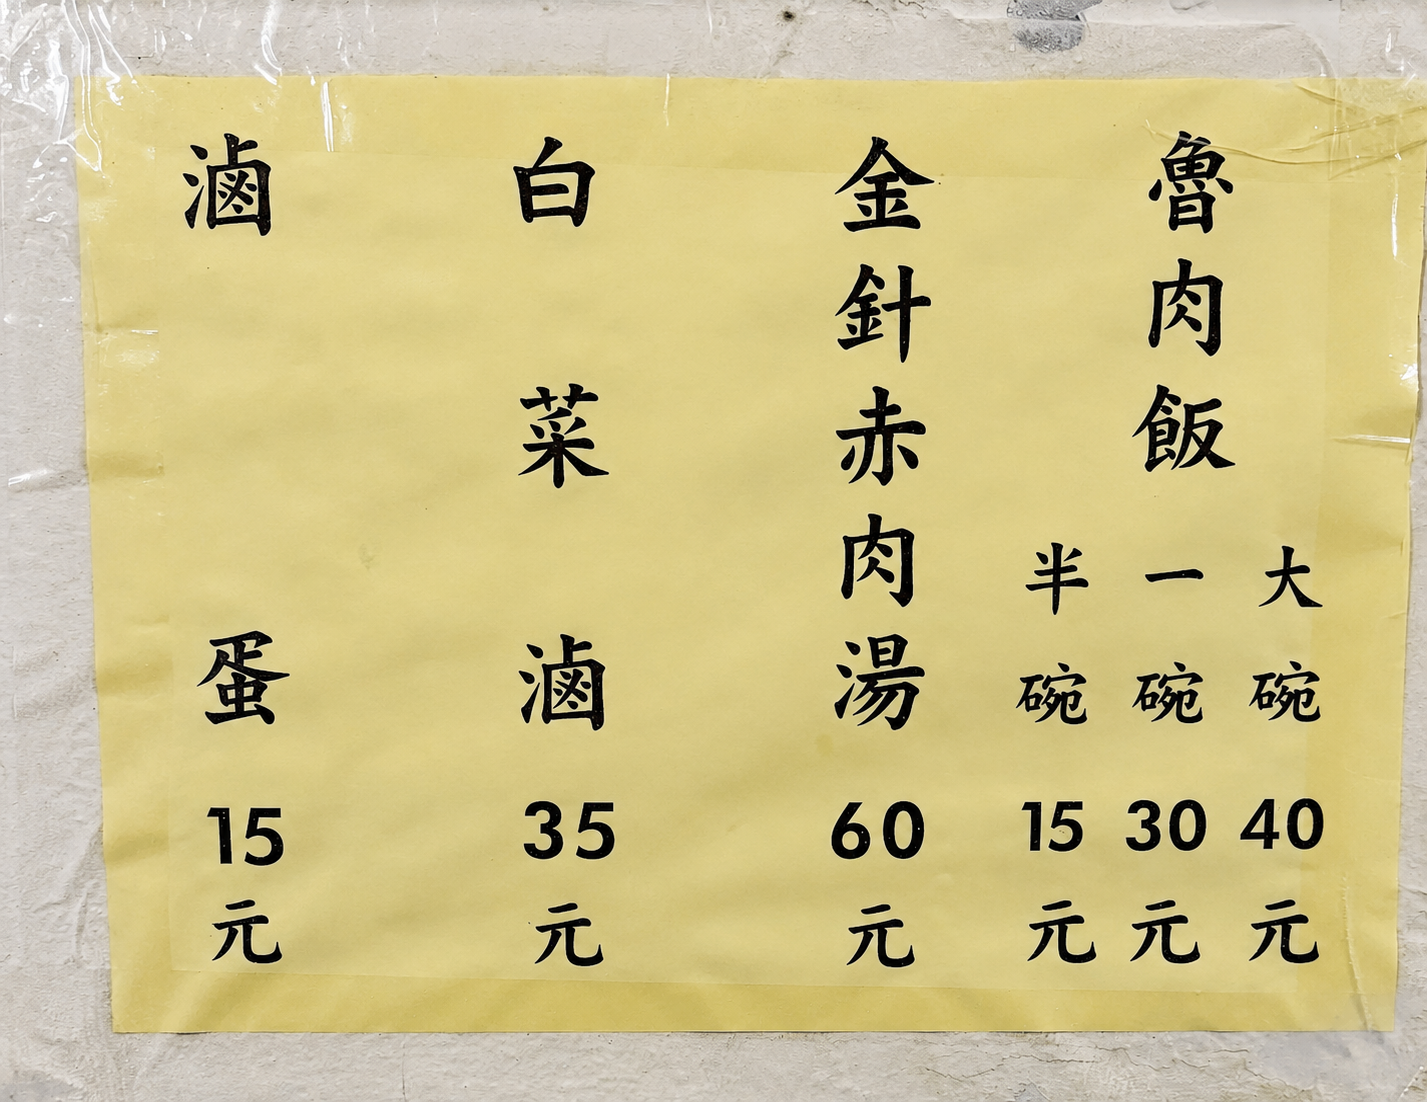 魯肉飯
大碗40元
一碗30元
半碗15元
金針赤肉湯60元
白菜滷35元
滷蛋15元